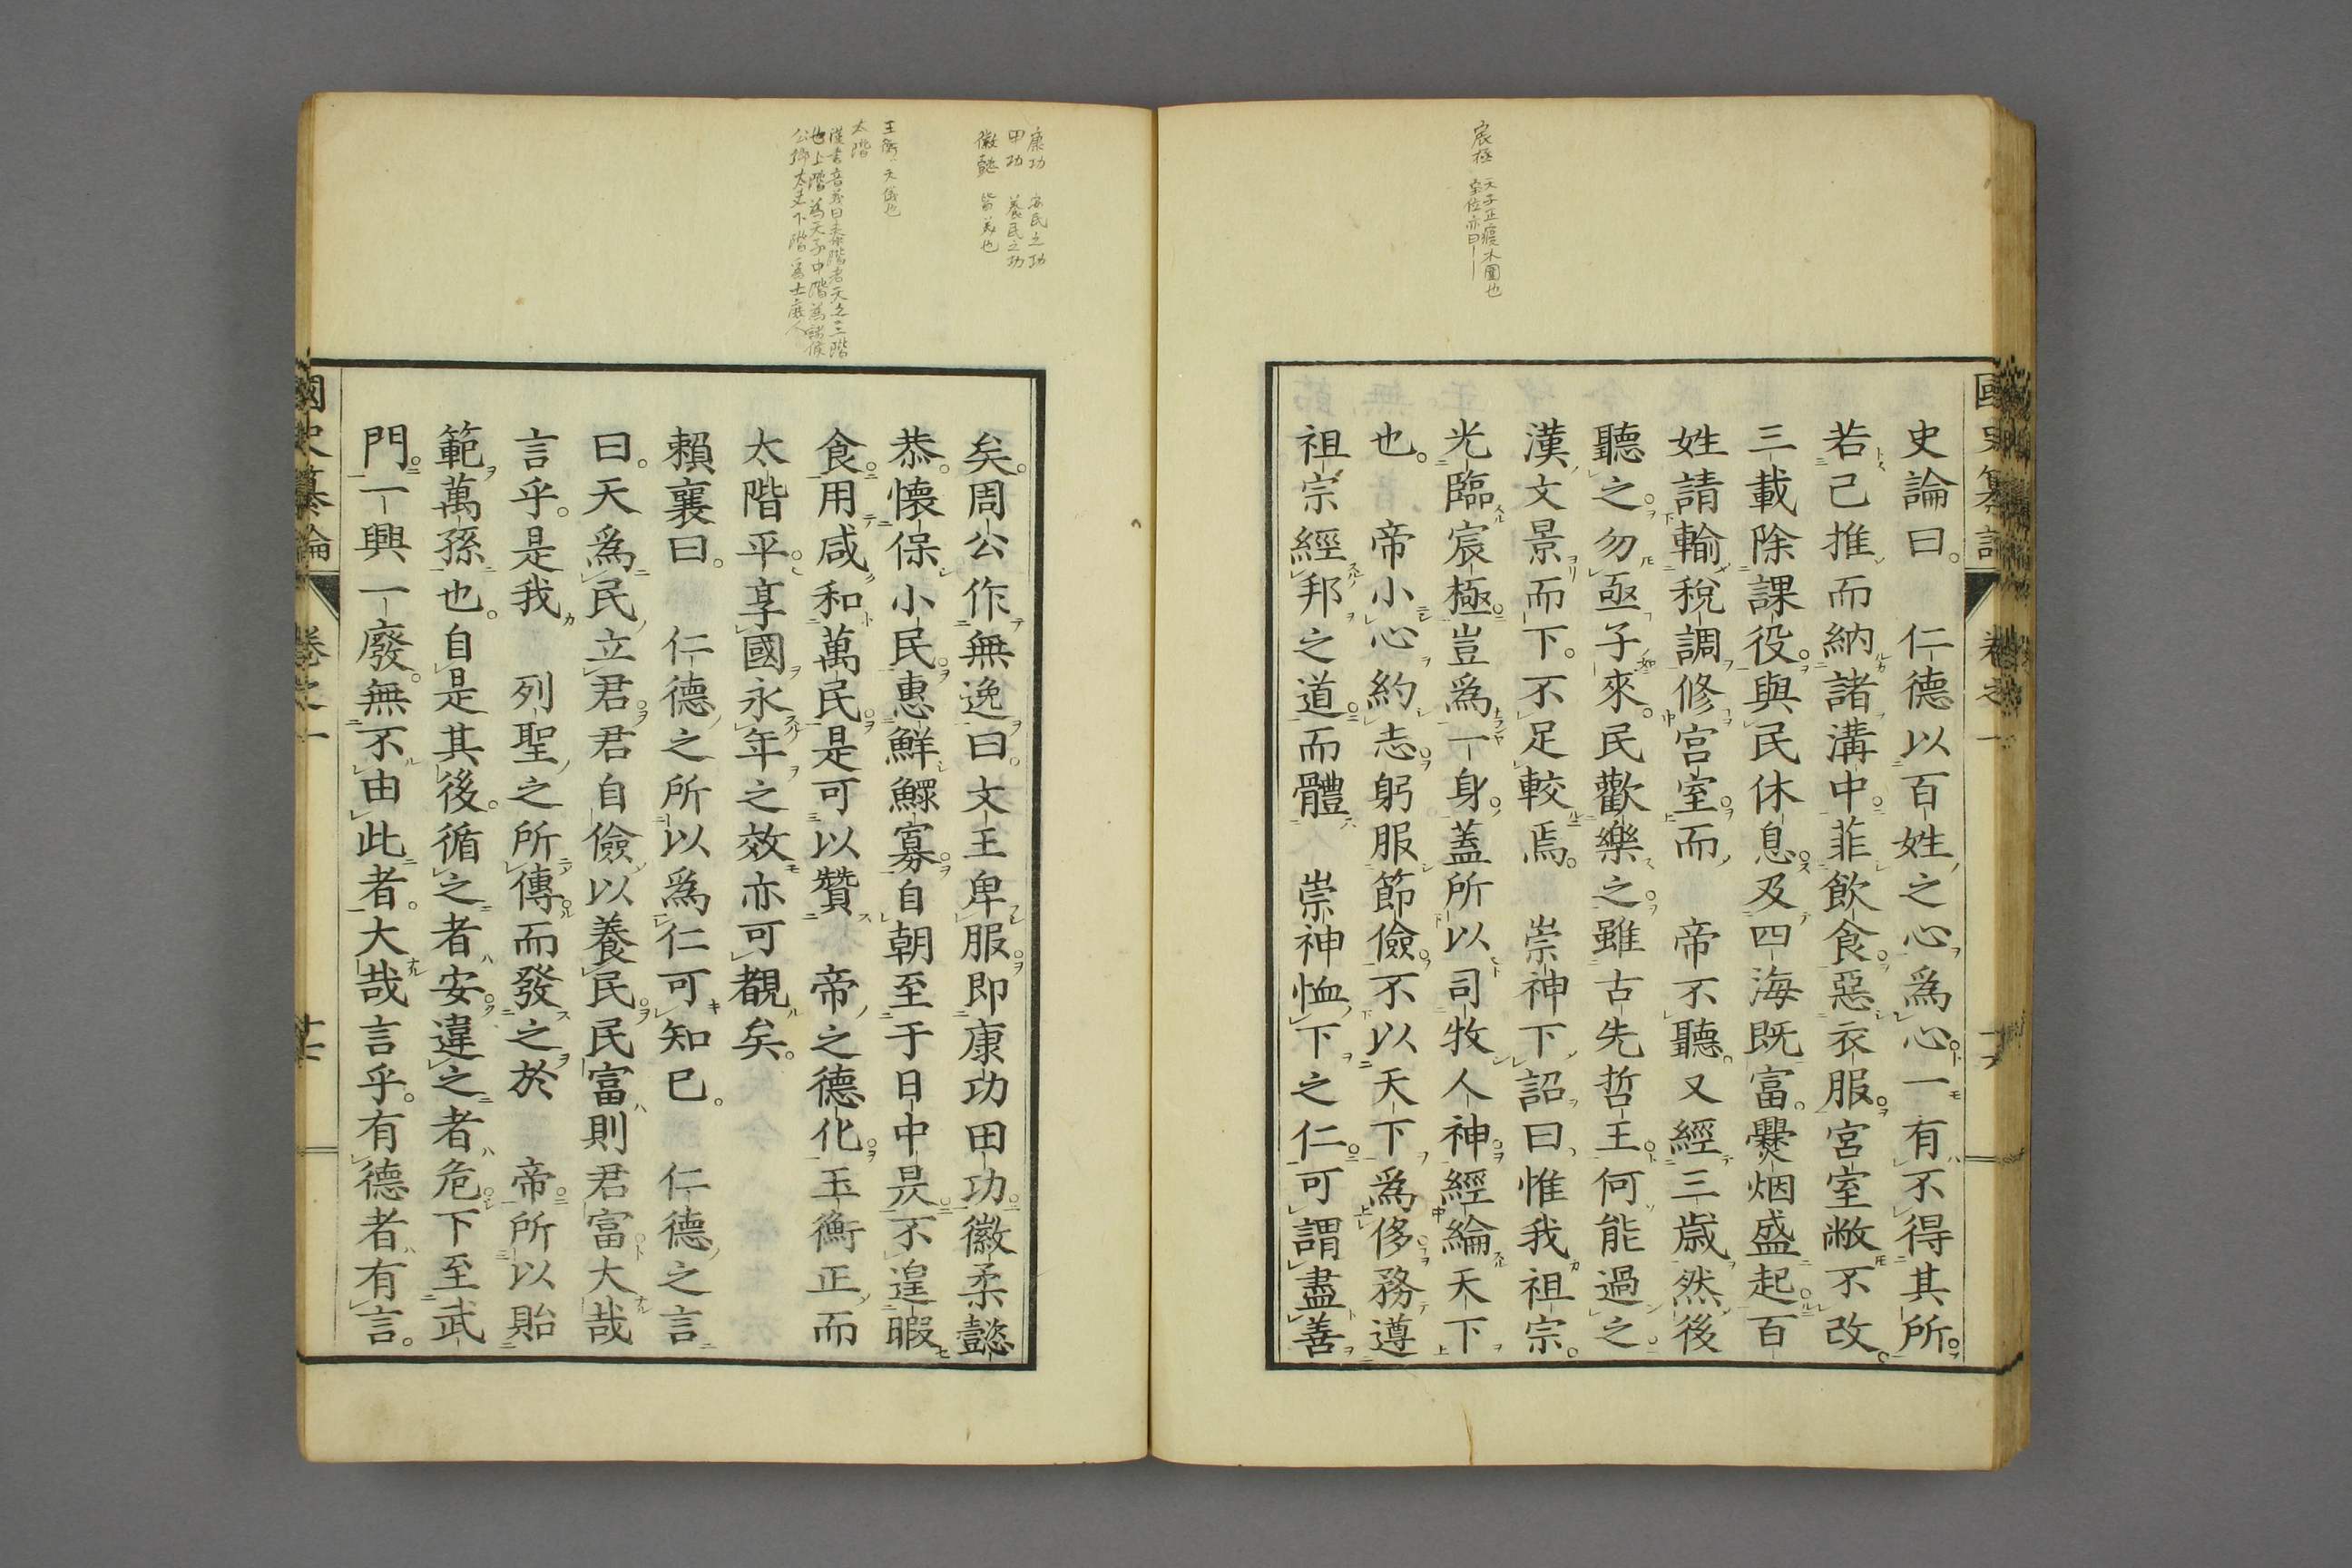 宸極 天子正寝木圍也
至位亦曰｜
國史纂論 卷之一
史論曰。 仁德以百姓之心爲心一有不得其所
若己推而納諸溝中菲飲食惡衣服宮室敝不改。
三載除課役與民休息及四海既富。爨烟盛起百
姓請輸稅調修宮室而 帝不聽。又經三歲然後
聽之勿亟子來。民歡樂之雖古先哲王何能過之
漢文景而下。不足較焉。 崇神下詔曰、惟我祖宗。
光臨宸極豈爲一身蓋所以司牧人神經綸天下
也。 帝小心約志躬服節儉不以天下爲侈務遵
祖宗經邦之道而體 崇神恤下之仁可謂盡善
康功 安民之功
田功 養民之功
徽懿 皆美也
玉衡 天儀也
太階
漢書音義曰太階者天之三階
也上階爲天子中階爲諸侯
公卿大夫下階爲士庶人
矣。周公作無逸曰。文王卑服即康功田功徽柔懿
恭。懷保小民惠鮮鰥寡自朝至于日中昃不遑暇
食用咸和萬民是可以贊 帝之德化玉衡正而
太階平享國永年之效亦可觀矣。
賴襄曰。 仁德之所以爲仁可知已。 仁德之言
曰。天爲民立君君自儉以養民民富則君富大哉
言乎。是我 列聖之所傳而發之於 帝所以貽
範萬孫也。自是其後。循之者安違之者危下至武
門。一興一廢。無不由此者。大哉言乎。有德者有言。
國史纂論 卷之一